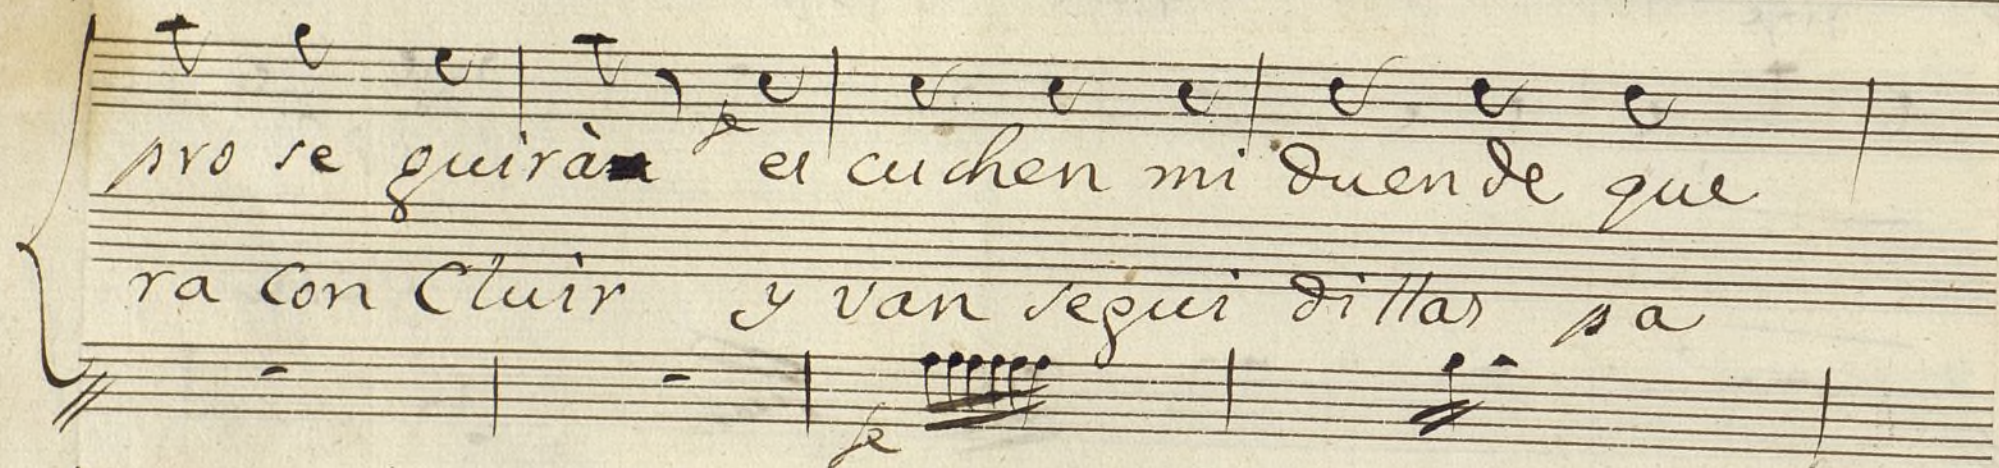 fe
pro se guirà es cuchen mi duen de que
ra con Cluir y van segui dillas pa
fe